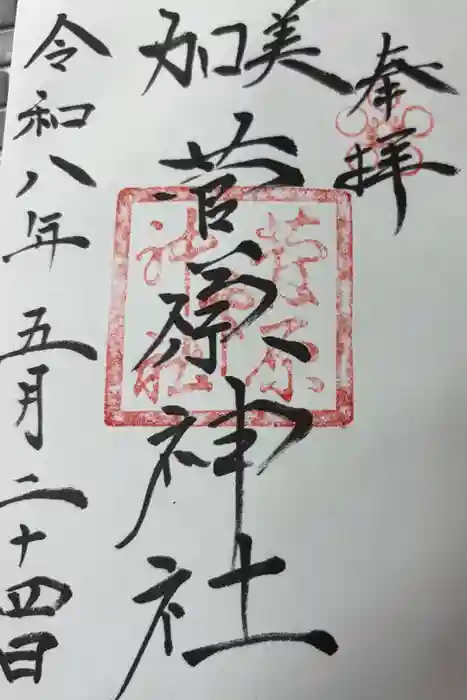 奉拝
加美
菅原神社
令和八年 五月二十四日
菅原
神社